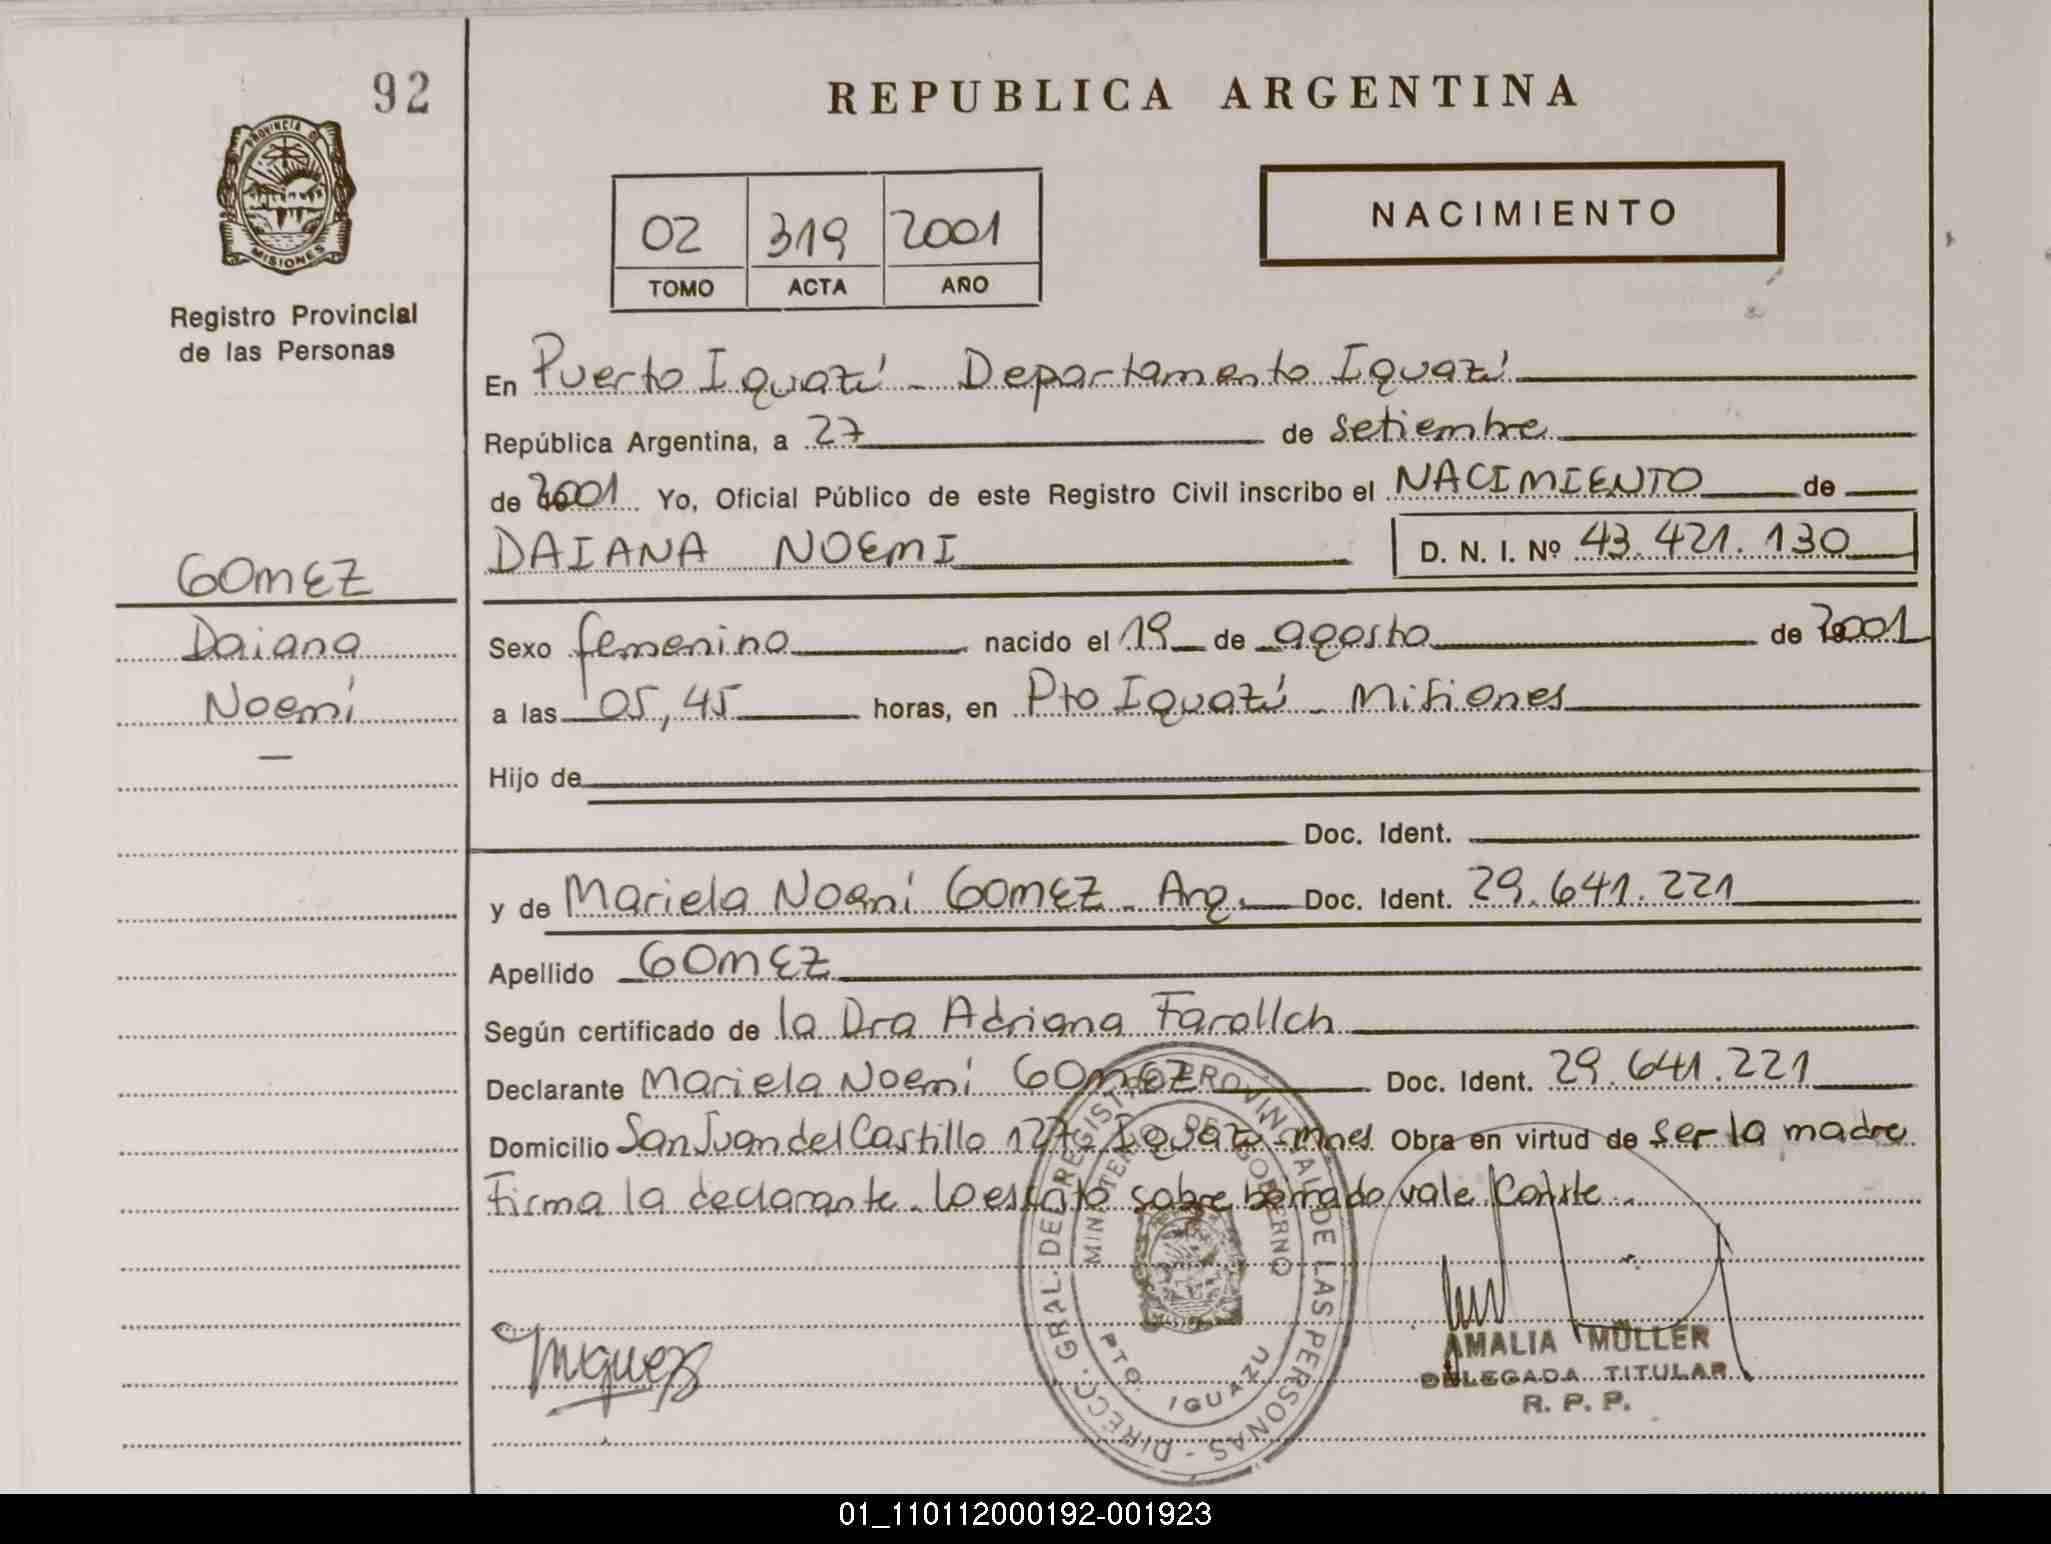 92
REPUBLICA ARGENTINA
PROVINCIA DE
MISIONES
Registro Provincial
de las Personas
02 319 2001
TOMO ACTA AÑO
NACIMIENTO
En Puerto Iguazú - Departamento Iguazú
República Argentina, a 27 de setiembre
de 2001 Yo, Oficial Público de este Registro Civil inscribo el NACIMIENTO de
DAIANA NOEMI D. N. I. Nº 43.421.130
GOMEZ
Daiana
Noemí
Sexo femenino nacido el 19 de agosto de 2001
a las 05,45 horas, en Pto Iguazú - Misiones
Hijo de
Doc. Ident.
y de Mariela Noemí GOMEZ - Arg. Doc. Ident. 29.641.221
Apellido GOMEZ
Según certificado de la Dra Adriana
Declarante Mariela Noemí GOMEZ Doc. Ident. 29.641.221
Domicilio San Juan del Castillo Iguazú - Mnes Obra en virtud de ser la madre
Firma la declarante. Lo escrito sobre borrado vale Conste.
DIRECC. GRAL. DEL REGISTRO PROVINCIAL DE LAS PERSONAS -
MINISTERIO DE GOBIERNO
PTO. IGUAZU
AMALIA MÜLLER
DELEGADA TITULAR
R. P. P.
01_110112000192-001923